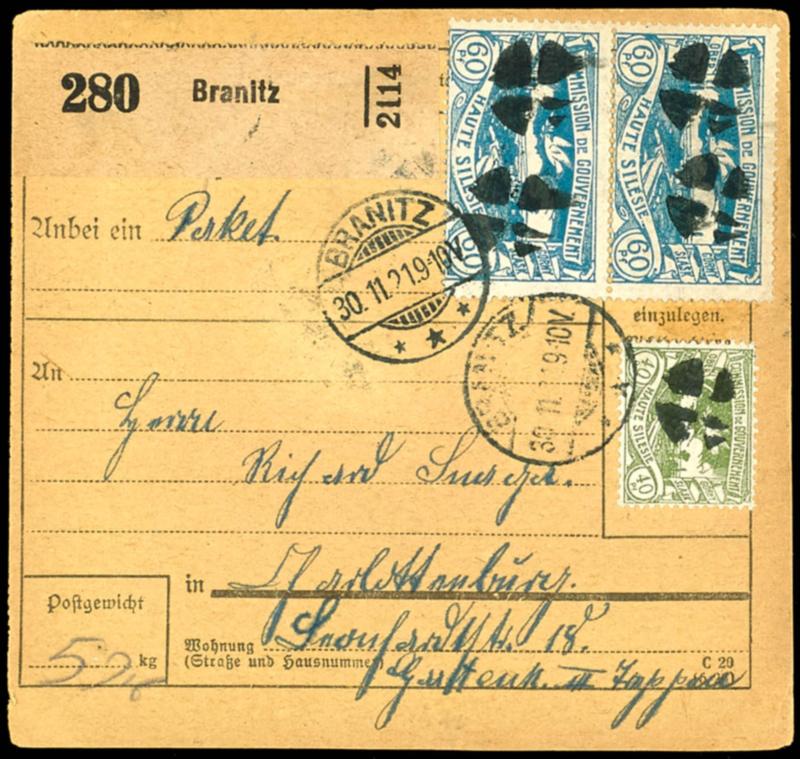 280 Branitz 2114
60 Pf COMMISSION DE GOUVERNEMENT HAUTE SILESIE 60 Pf
60 Pf COMMISSION DE GOUVERNEMENT HAUTE SILESIE 60 Pf
Anbei ein Paket.
BRANITZ
30.11.21.9-10V.
einzulegen.
BRANITZ
30.11.21.9-10V.
40 Pf COMMISSION DE GOUVERNEMENT HAUTE SILESIE 40 Pf
An
Herrn
Richard
in Charlottenburg.
Postgewicht
kg
Wohnung
(Straße und Hausnummer)
Leonhardtstr. 18.
Gartenh. III Treppen
C 20